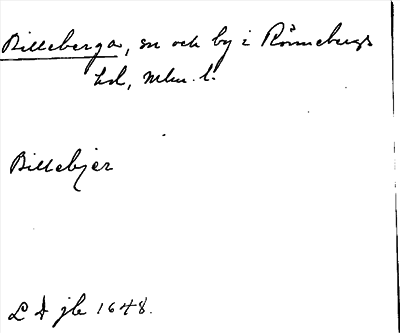 Billeberga, sn och by i Rönnebergs
hd, Mlm. l.
Billebjer
L A jb 1648.